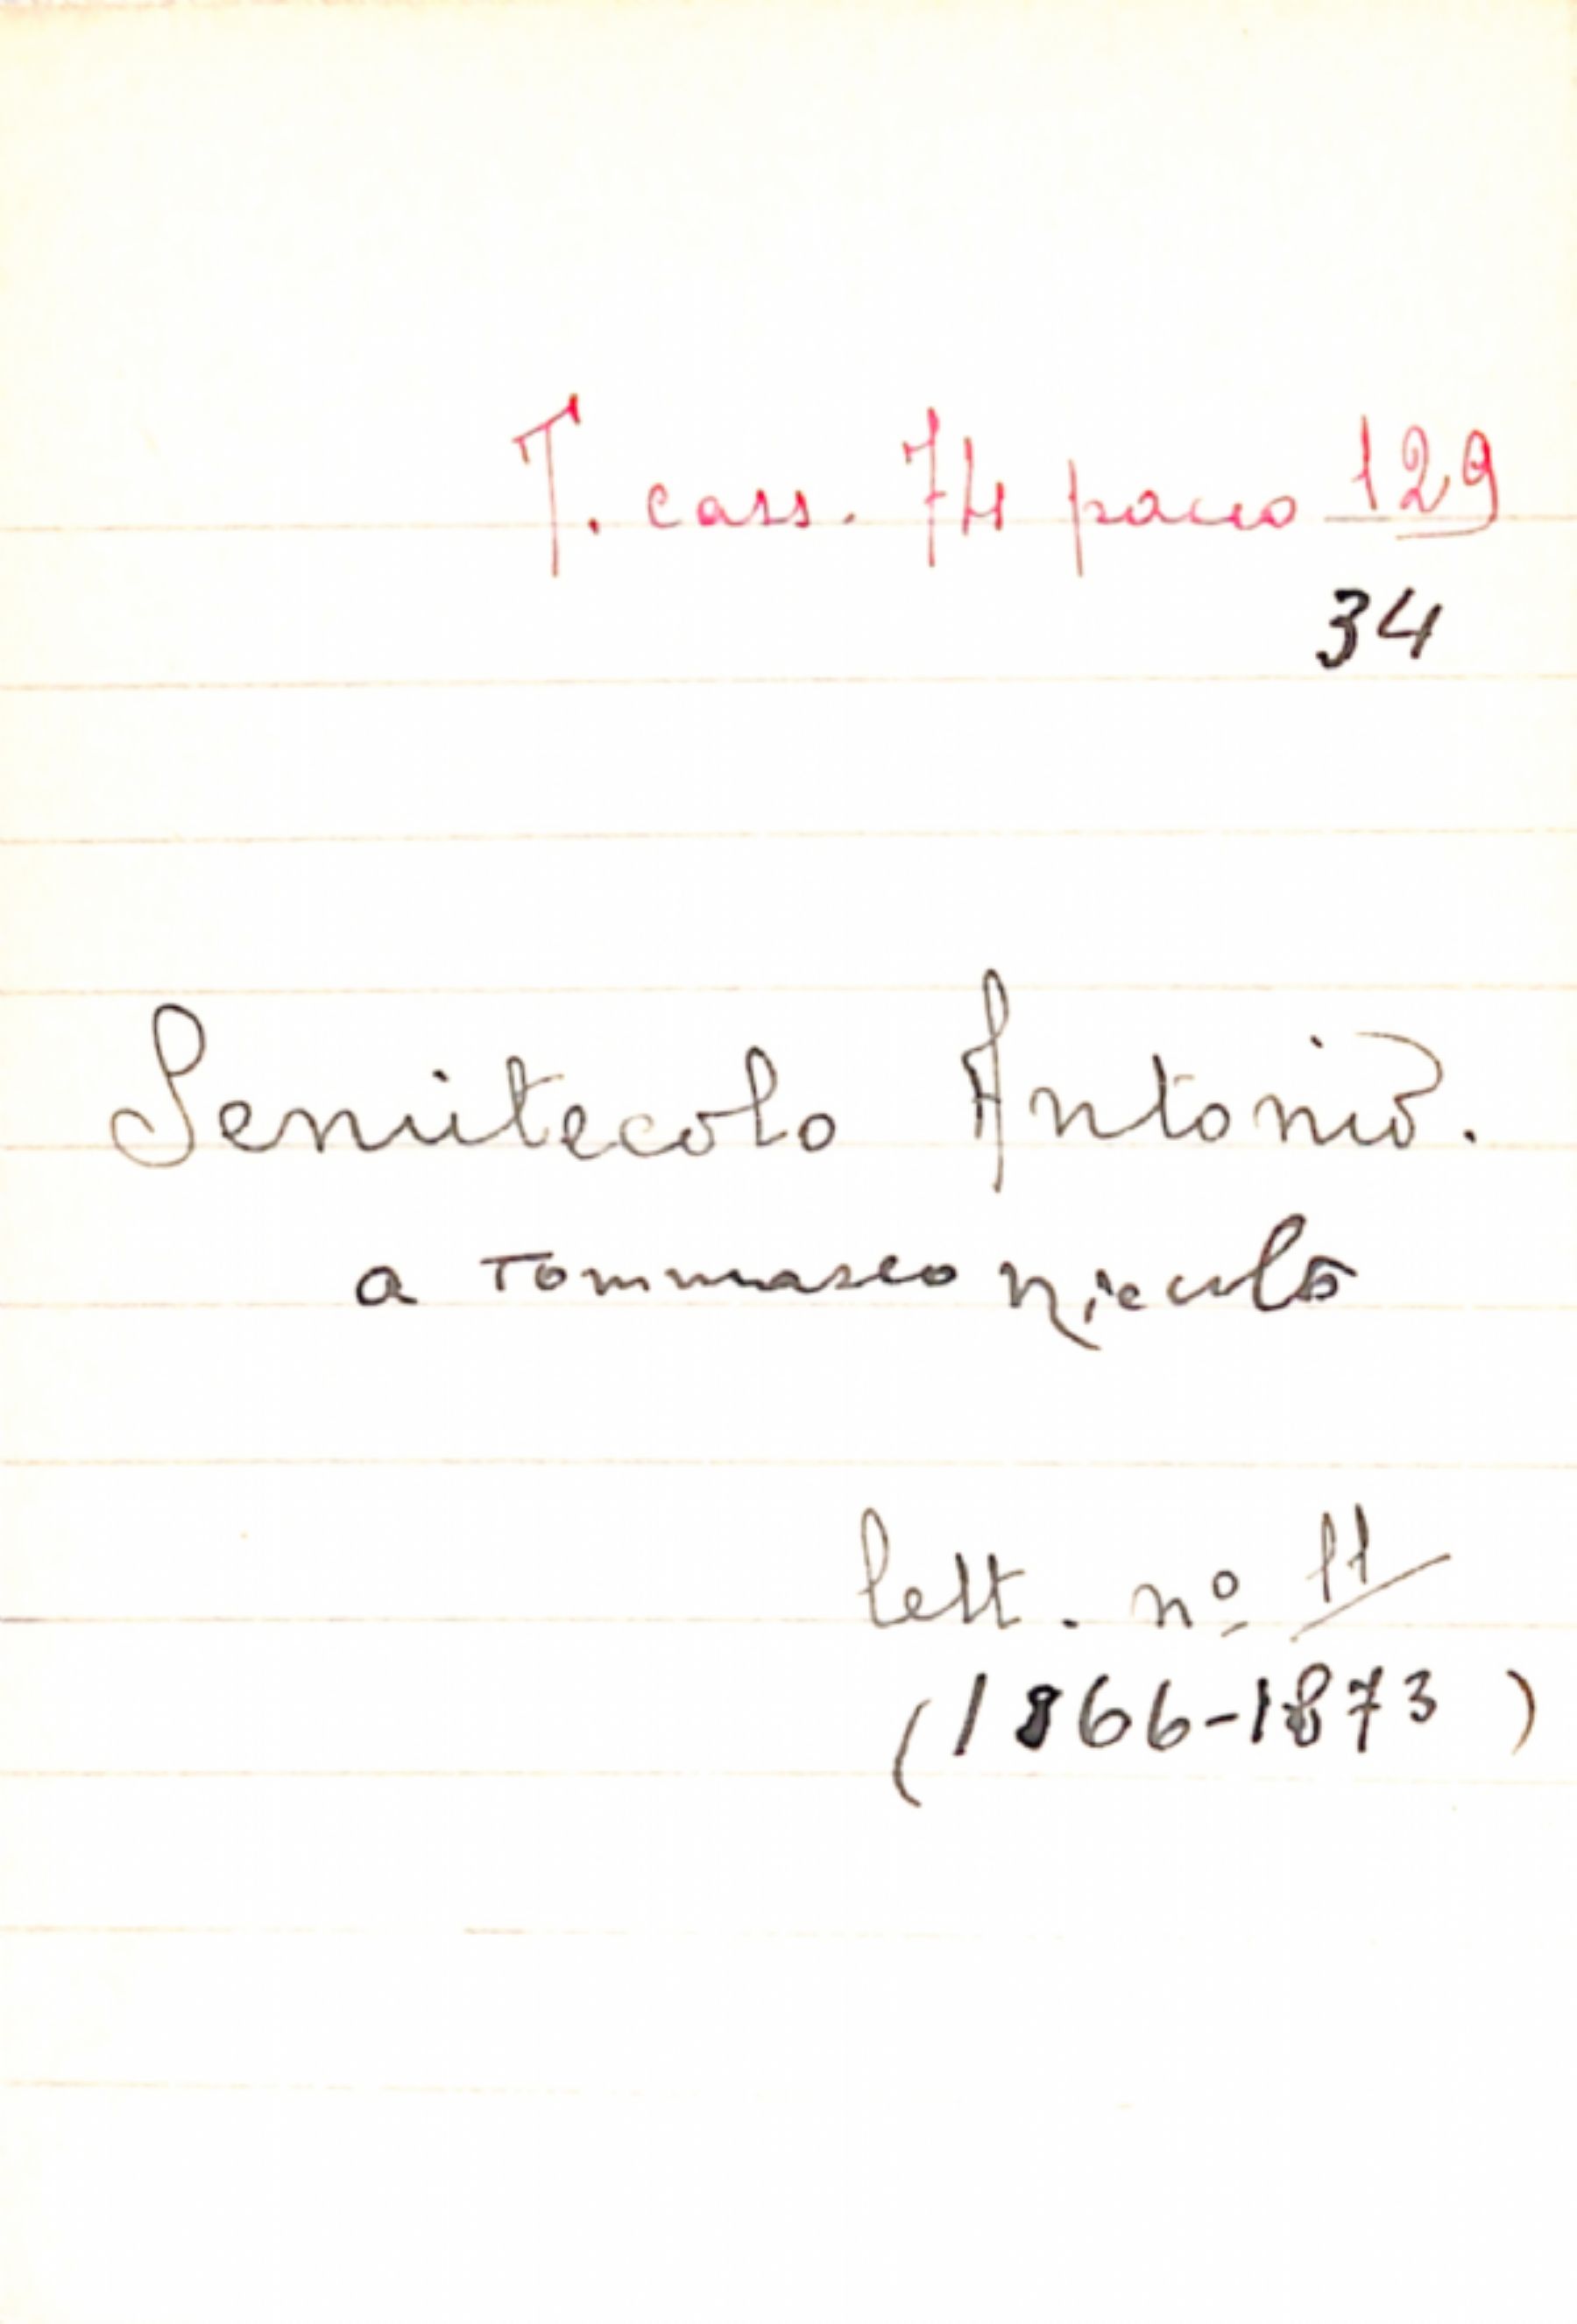 T. cass. 74 pacco 129
34
Semitecolo Antonio.
a Tommaseo Niccolò
lett. nº 11
(1866-1873)